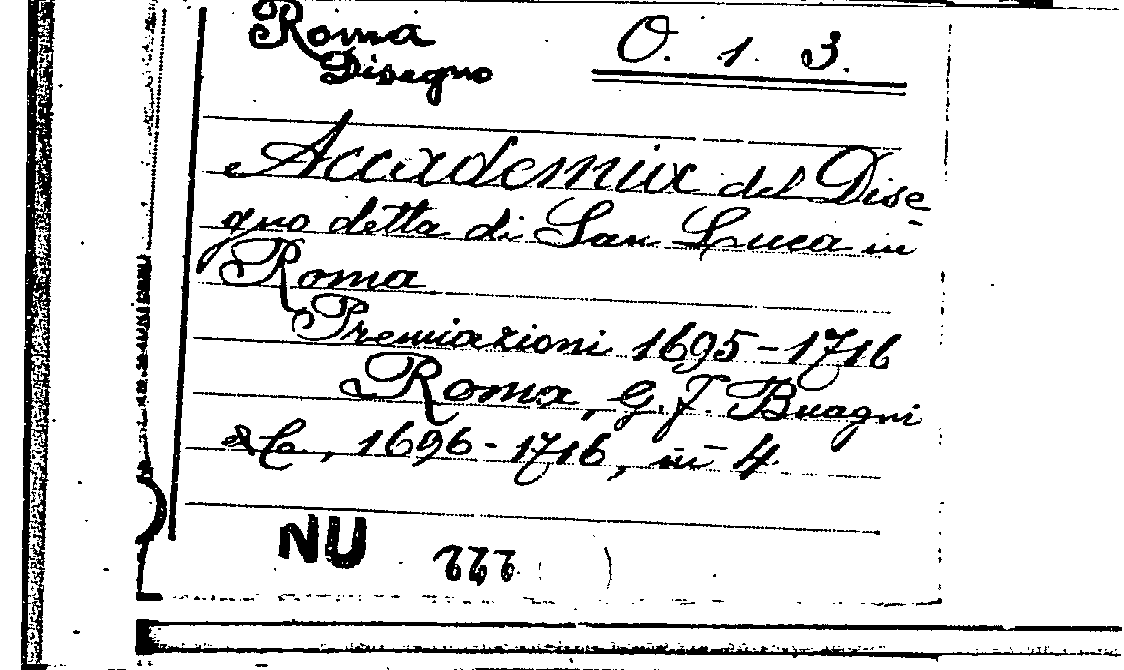 Roma O. 1. 3.
Disegno
Accademia del Dise-
gno detta di San Luca in
Roma
Premiazioni 1695-1716
Roma, G. F. Buagni
& C., 1696-1716, in 4.
NU